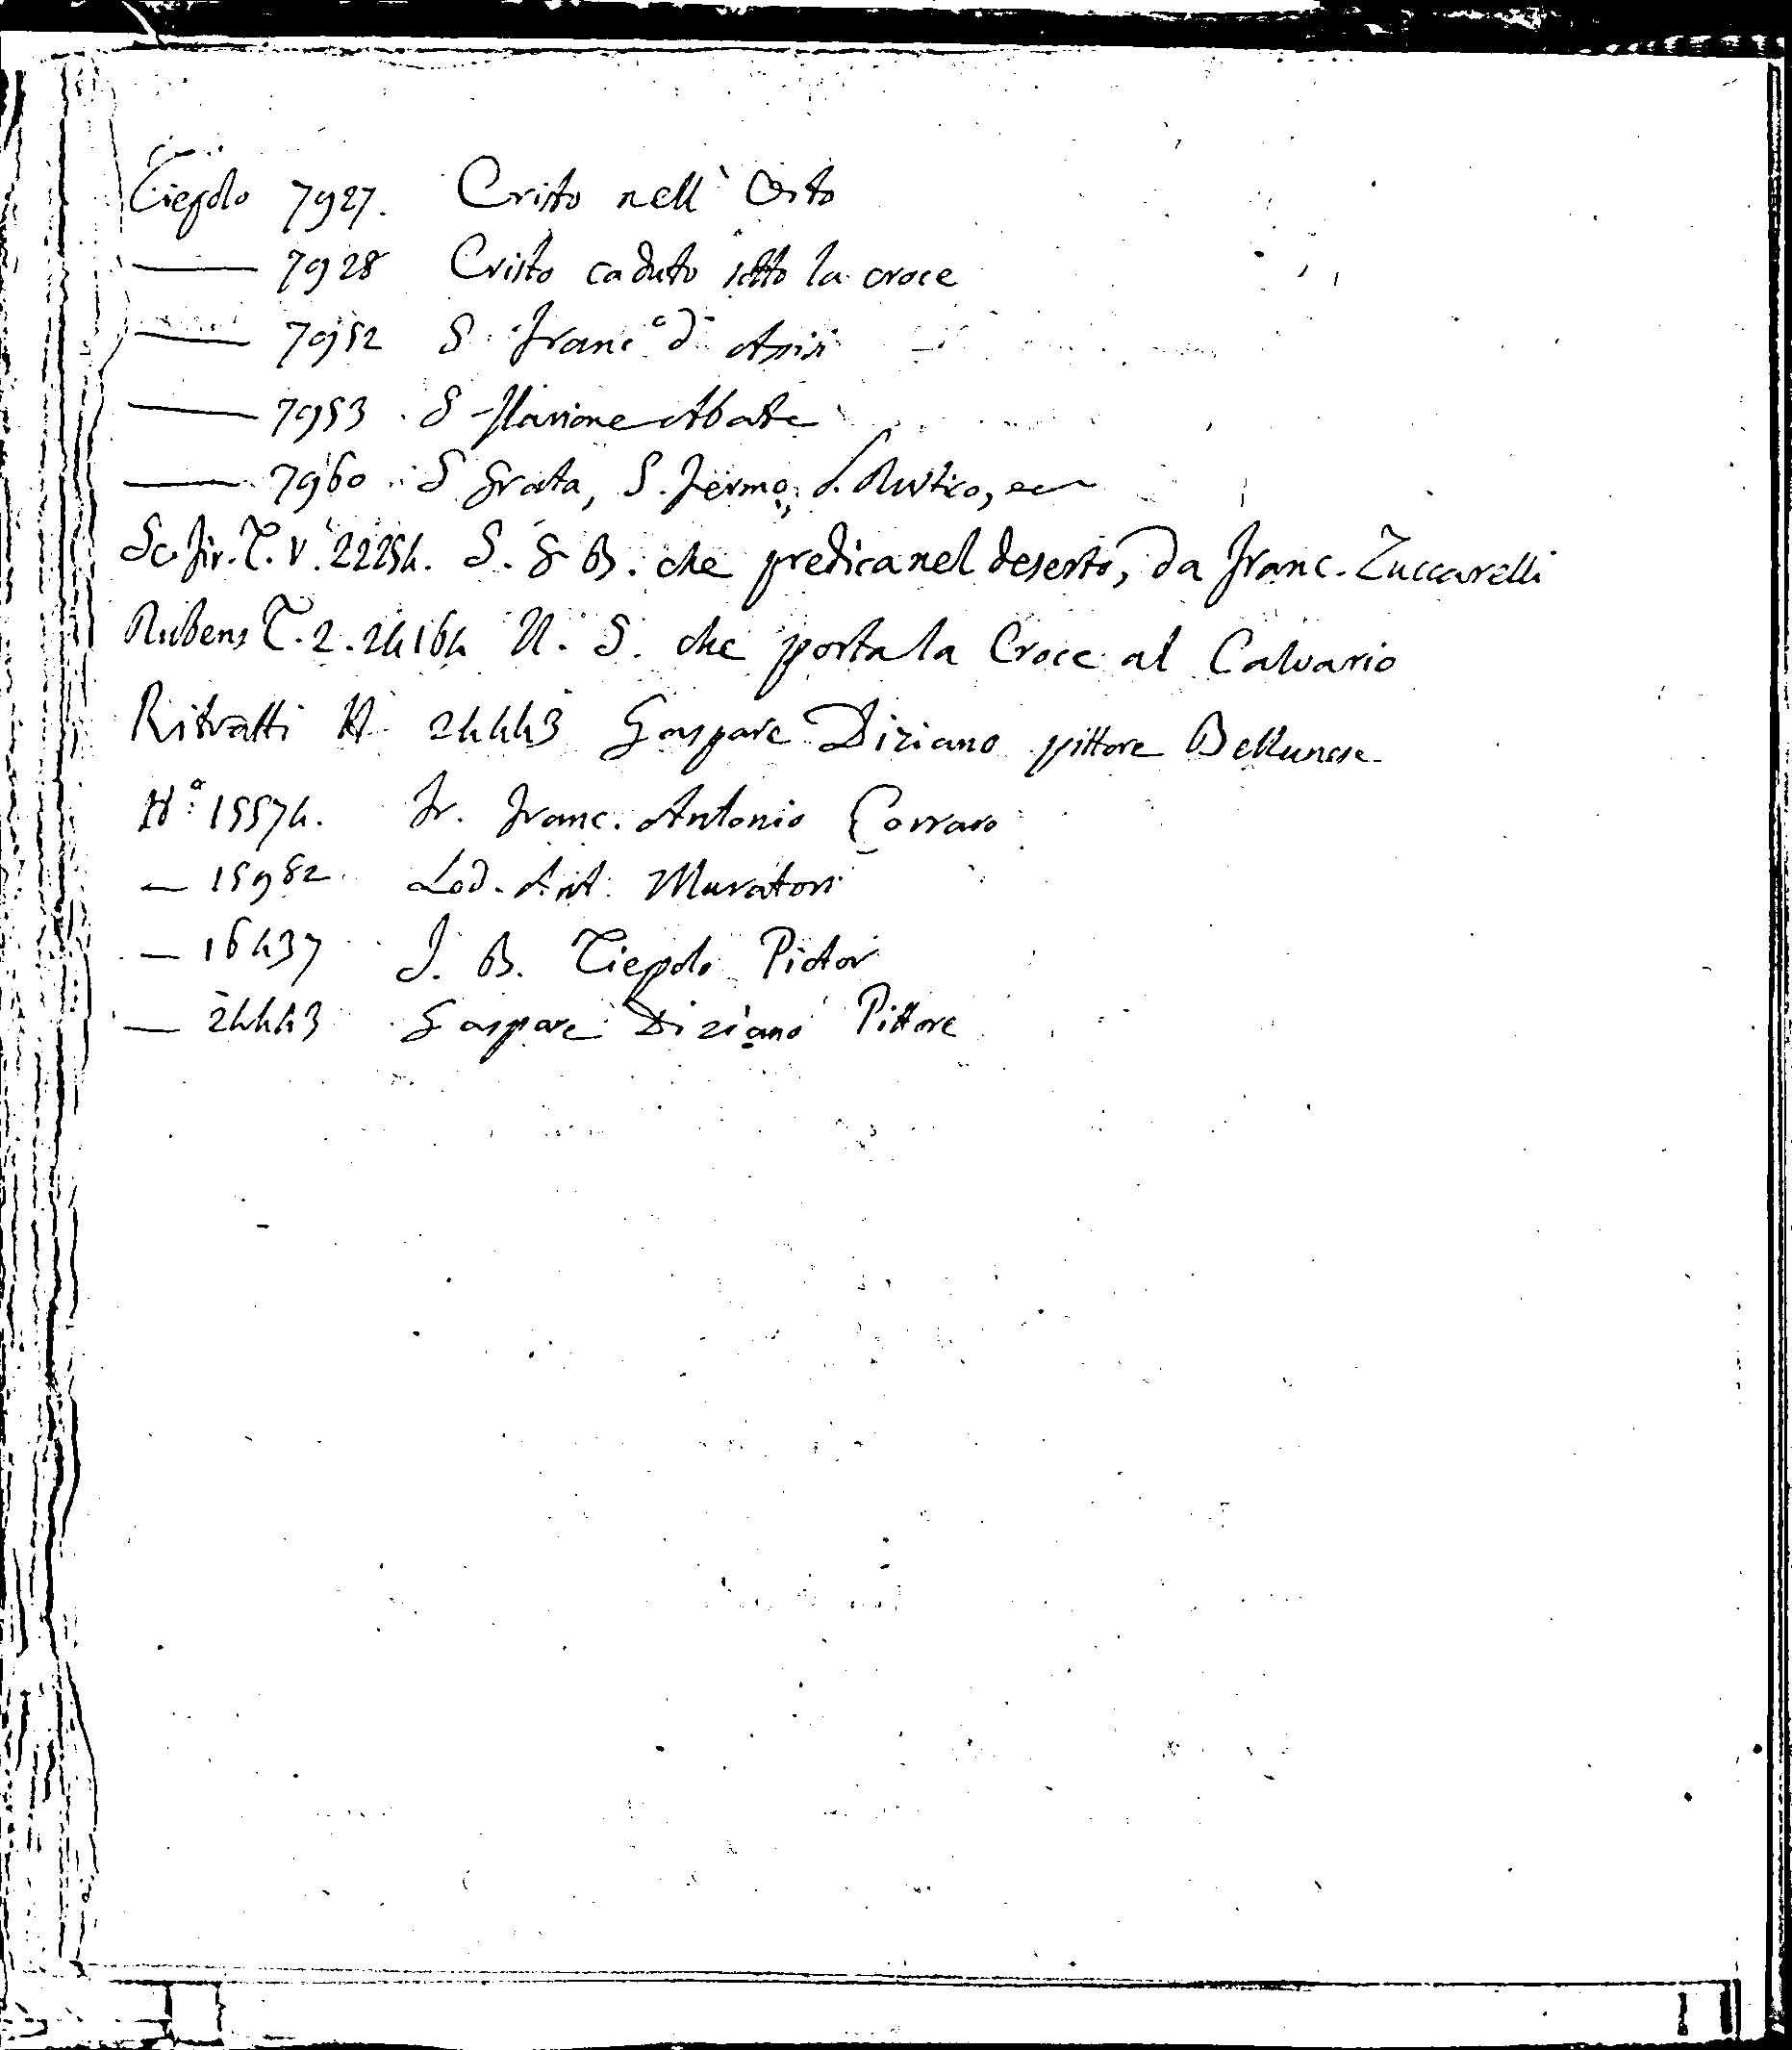 Tiepolo 7927. Cristo nell' Orto
—— 7928 Cristo caduto sotto la croce
—— 7952 S Franc.º d' Assisi
—— 7953 S Ilarione Abate
—— 7960 S Grata, S. Fermo, S. Rustico, ec
Sc. Fir. T. V. 22254. S. G B. che predica nel deserto, da Franc. Zuccarelli
Rubens T. 2. 24164 N. S. che porta la Croce al Calvario
Ritratti N 24443 Gaspare Diziano pittore Bellunese
Nº 15574. Fr. Franc. Antonio Corraro
— 15982 Lod. Ant. Muratori
— 16437 J. B. Tiepolo Pictor
— 24443 Gaspare Diziano Pittore